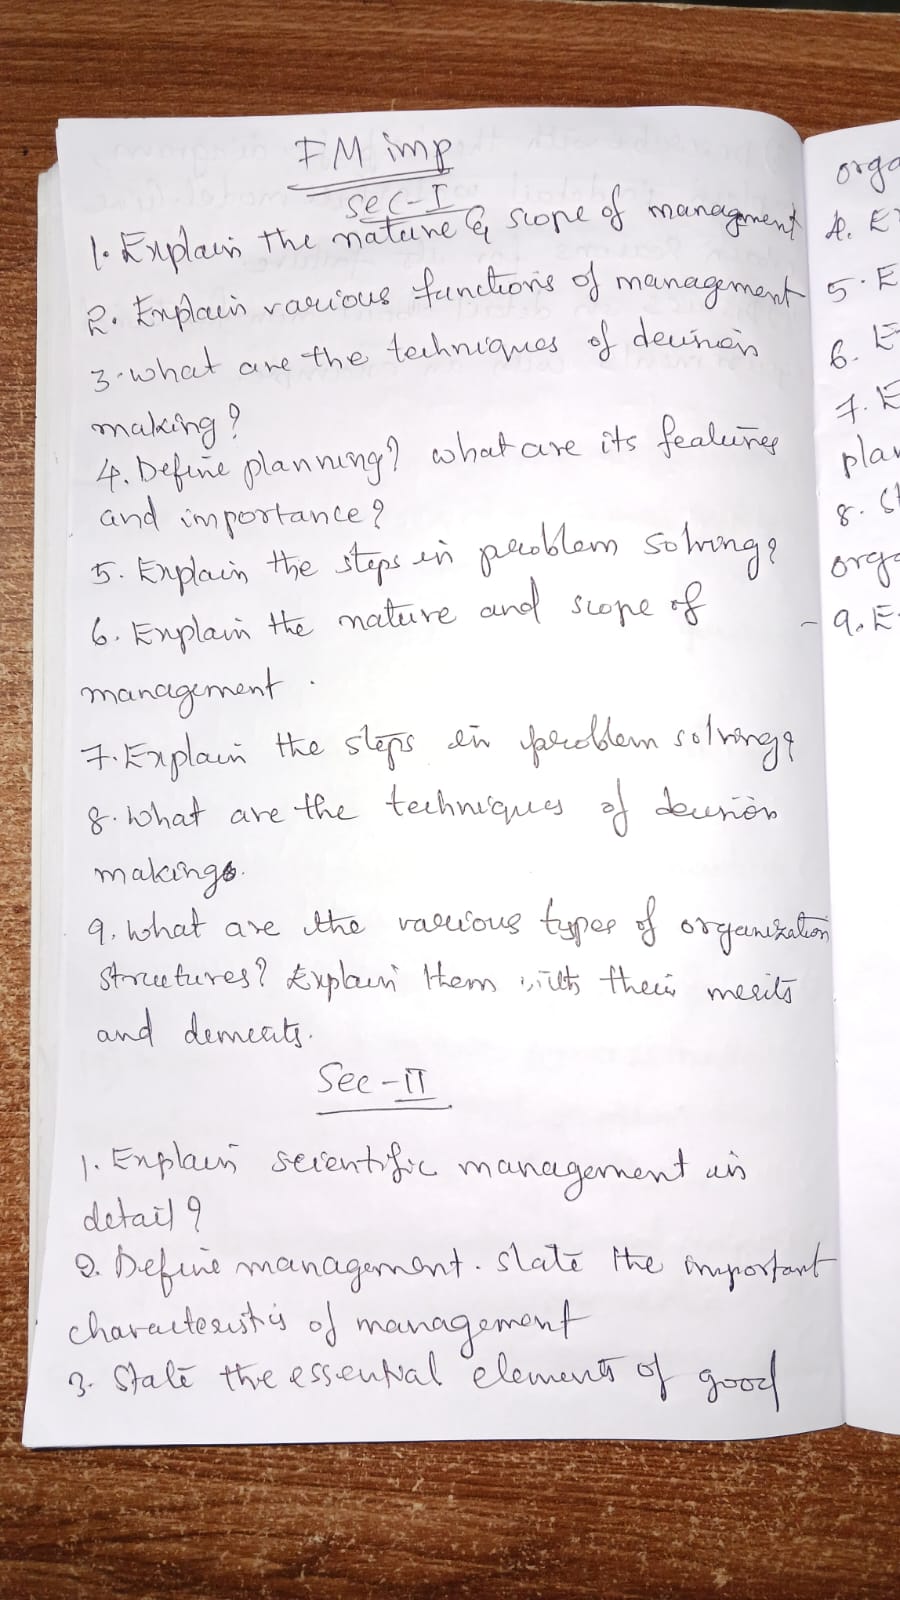 FM imp
Sec-I
1. Explain the nature & scope of managment
2. Explain various functions of management
3. what are the techniques of decision
making?
4. Define planning? what are its features
and importance?
5. Explain the steps in problem solving?
6. Explain the nature and scope of
management.
7. Explain the steps in problem solving?
8. What are the techniques of decision
making.
9. What are the various types of organization
structures? Explain them with their merits
and demerits.
Sec-II
1. Explain scientific management in
detail?
2. Define management. State the important
characteristics of management
3. State the essential elements of good
orga
4. E
5. E
6. E
7. E
plan
8. St
orga
9. E